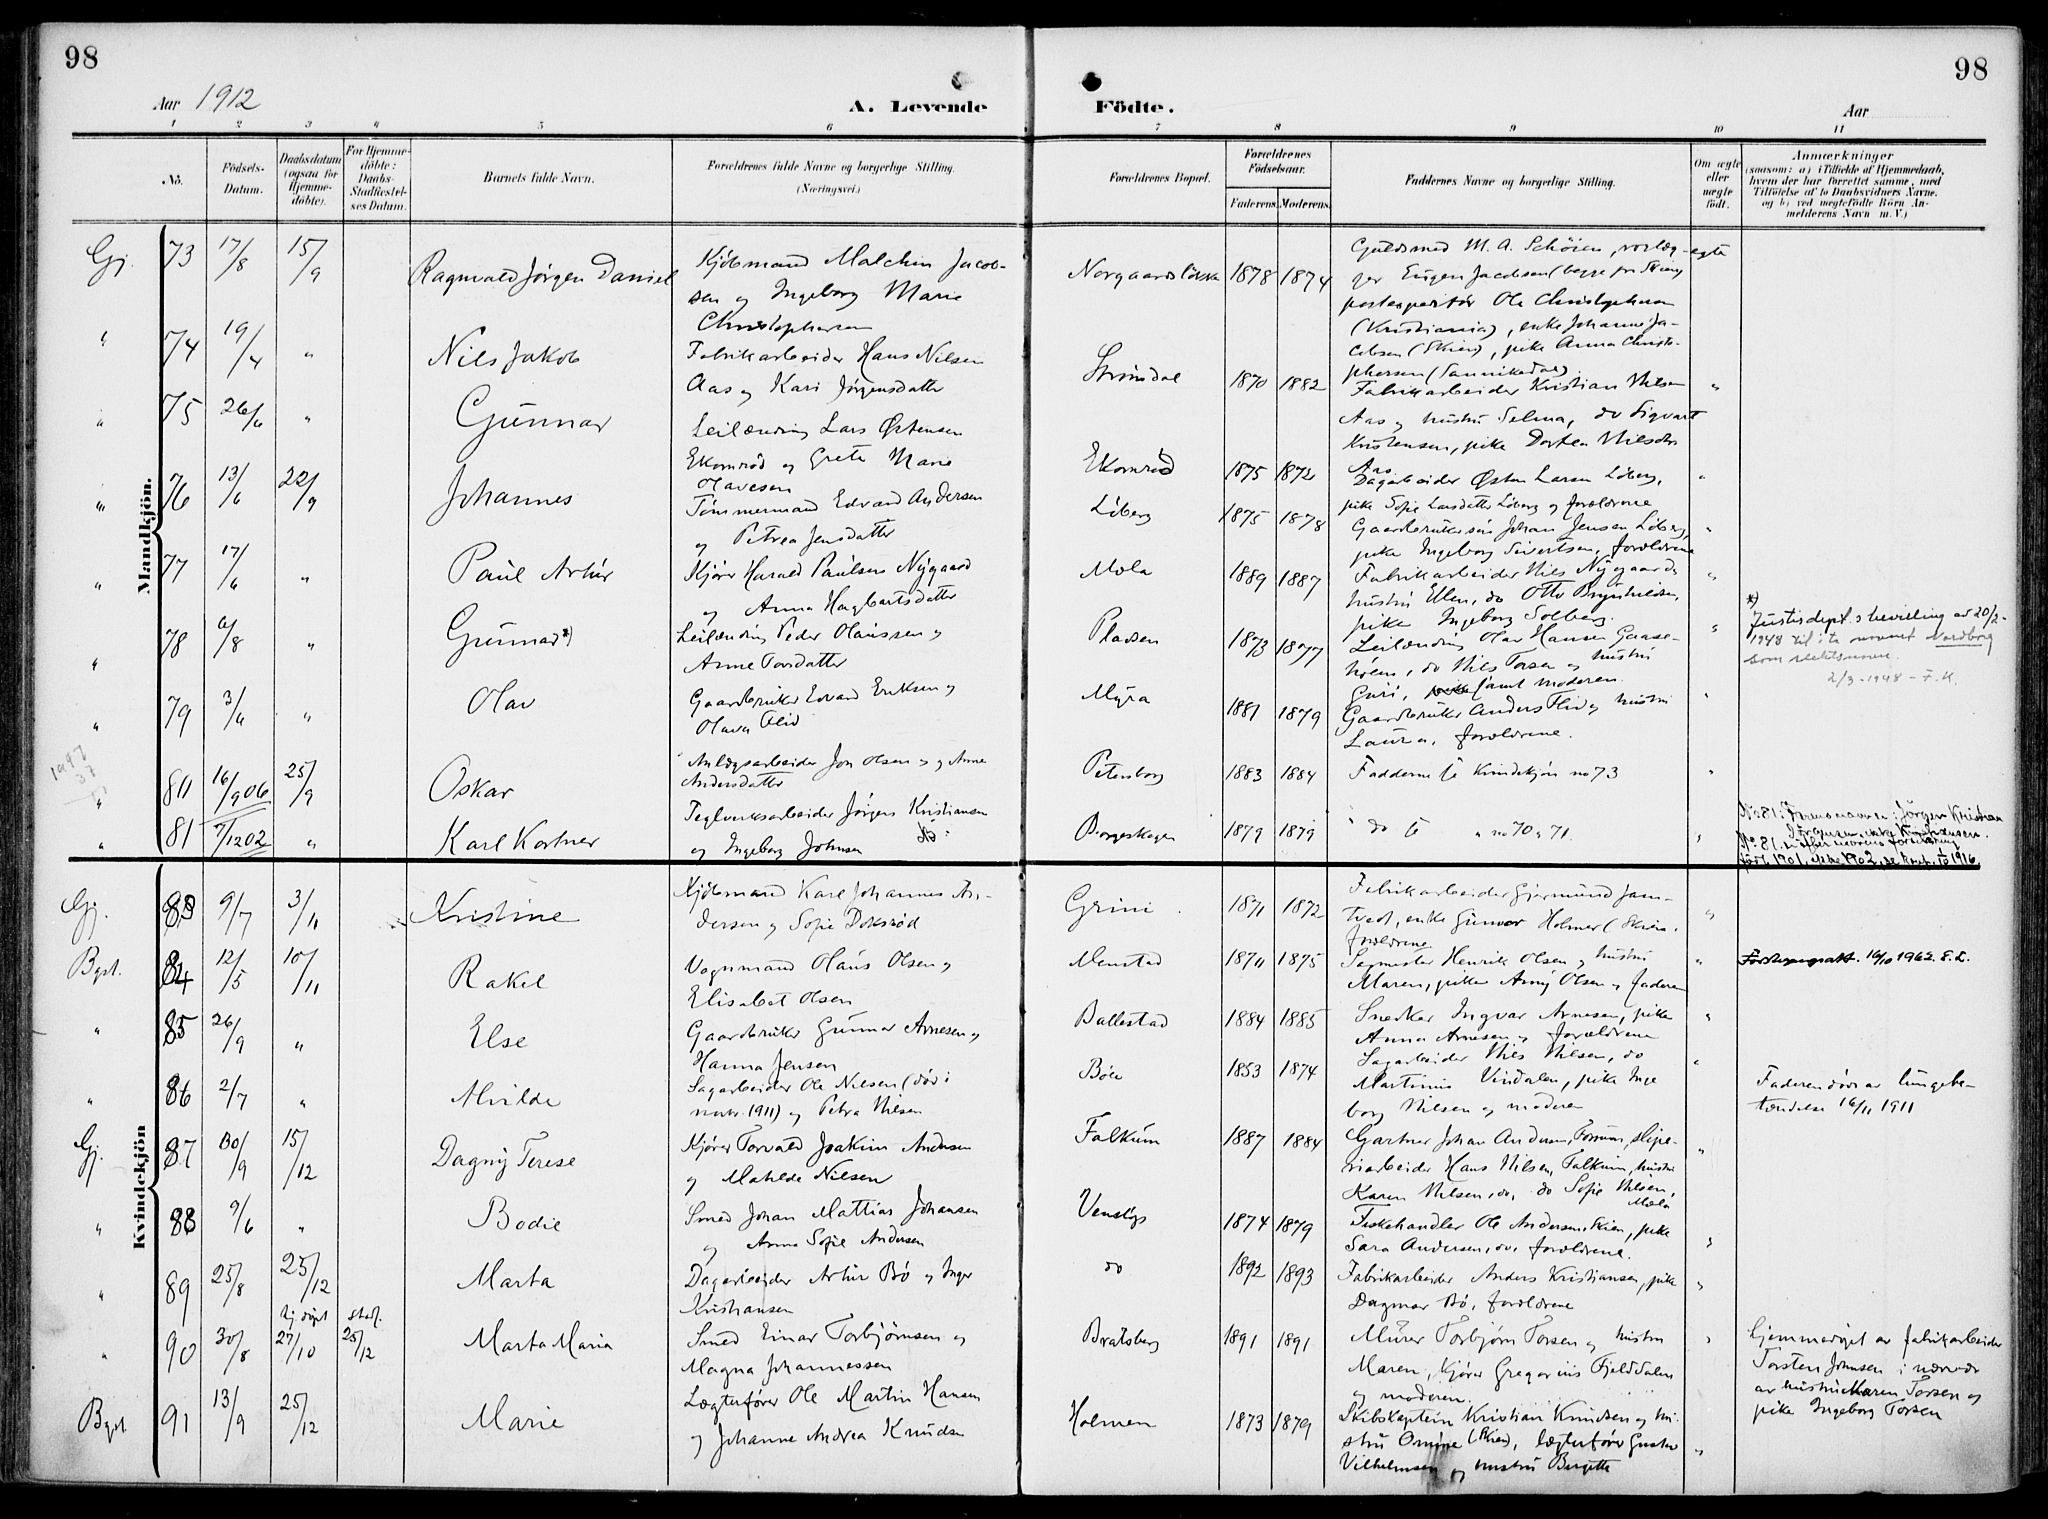 98
98
Aar 1912
A. Levende
Födte.
Aar
1 2 3 4 5 6 7 8 9 10 11
No.
Födsels-
Datum.
Daabsdatum
(ogsaa for
Hjemme-
döbte).
For Hjemme-
döbte:
Daabs-
Stadfæstel-
ses Datum.
Barnets fulde Navn.
Forældrenes fulde Navne og borgerlige Stilling.
(Næringsvei.)
Forældrenes Bopæl.
Forældrenes
Födselsaar.
Faderens. Moderens.
Faddernes Navne og borgerlige Stilling.
Om ægte
eller
uægte
födt.
Anmærkninger
(saasom: a) i Tilfælde af Hjemmedaab,
hvem der har forrettet samme, med
Tilföielse af to Daabsvidners Navne.
og b) ved uægtefödte Börn An-
melderens Navn m. V.)
Mandkjön.
Gj. 73 17/8 15/9 Ragnvald Jørgen Daniel
Kjöbmand Malchin Jacob-
sen og Ingeborg Marie
Christophersen
Norgaardsløkka 1878 1874
Guldsmed M. A. Schöien, rørlæg-
ger Eugen Jacobsen (begge fra Skien)
postexpeditør Ole Christophersen
(Kristiania), enke Johanne Ja-
cobsen (Skien), pike Anna Christo-
phersen (Sannikedal)
egte
" 74 19/4 " Nils Jakob
Fabrikarbeider Hans Nilsen
Aas og Kari Jörgensdatter
Strömdal 1870 1882
Fabrikarbeider Kristian Nilsen
Aas og hustru Selma, do Sigvart
Kristensen, pike Dortea Nilsdtr
Aas.
"
" 75 26/6 " Gunnar
Leilænding Lars Østensen
Ekornrød og Grete Marie
Olavesen
Ekornrød 1875 1872
Dagarbeider Østen Larsen Löberg,
pike Sofie Larsdatter Löberg og forældrene
"
" 76 13/6 22/9 Johannes
Tömmermand Edvard Andersen
og Petrea Jensdatter
Löberg 1875 1878
Gaardbrukersön Johan Jensen Löberg,
pike Ingeborg Sivertsen, forældrene
"
" 77 17/6 " Paul Artur
Kjörer Harald Paulsen Nygaard
og Anna Hagbartsdatter
Mæla 1889 1887
Fabrikarbeider Nils Nygaard,
hustru Ellen, do Otto Brynhildsen,
pike Ingeborg Solberg.
"
" 78 6/8 " Gunnar *)
Leilænding Peder Olaussen og
Anne Torsdatter
Pladsen 1873 1877
Leilænding Olav Hansen Gaase-
holm, do Nils Torsen og hustru
Guri, samt moderen.
"
*)
Justisdept.s bevilling av 20/2-
1948 til å ta navnet Nordborg
som slektsnavn.
2/3-1948 - F.K.
" 79 3/6 " Olav
Gaardbruker Edvard Eriksen og
Olava Flid
Myra 1881 1879
Gaardbruker Anders Flid og hustru
Laura, forældrene.
"
1947
" 80 16/9 06 25/9 Oskar
Anlægsarbeider Jon Olsen og Anne
Andersdatter
Petersborg 1883 1884
Fadderne til Kvindekjön no 73
"
" 81 7/12 02 " Karl Kortner
Teglverksarbeider Jörgen Kristiansen
og Ingeborg Johnsen
Borgeskogen 1879 1879
do til " no 70 og 71.
"
No 81:
No 81.
født 1901, ikke 1902, 1916
Kvindekjön
Gj. 83 9/7 3/11 Kristine
Kjöbmand Karl Johannes An-
dersen og Sofie Doksröd
Grini 1871 1872
Fabrikarbeider Gjermund Jam-
tvedt, enke Gunvor Holmer (Skien),
forældrene
"
Bgst. 84 12/5 10/11 Rakel
Vognmand Olaus Olsen og
Elisabet Olsen
Menstad 1871 1875
Sagmester Henrik Olsen og hustru
Maren, pike Anny Olsen og faderen
"
1962. E.L.
" 85 26/9 " Else
Gaardbruker Gunnar Arnesen og
Hanna Jensen
Ballestad 1884 1885
Snedker Ingvar Arnesen, pike
Anna Arnesen og forældrene
"
" 86 2/7 " Alvilde
Sagarbeider Ole Nilsen (död i
novbr. 1911) og Petra Nilsen
Böle 1853 1874
Sagarbeider Nils Nilsen, do
Martinius Vindalen, pike Inge
borg Nilsen og moderen
"
Faderen död av lungebe-
tændelse 16/11 1911
Gj. 87 30/9 15/12 Dagny Terese
Kjörer Torvald Joakim Andersen
og Matilde Nilsen
Falkum 1887 1884
Gartner Johan Andersen, Fossum, slipe-
riarbeider Hans Nilsen, Falkum, hustru
Karen Nilsen, do, do Sofie Nilsen,
Mæla
"
" 88 9/6 " Bodil
Smed Johan Mattias Johansen
og Anne Sofie Andersen
Venstöp 1874 1879
Fiskehandler Ole Andersen, Skien, pike
Sara Andersen, do, forældrene.
"
" 89 25/8 25/12 Marta
Dagarbeider Artur Bö og Inger
Kristiansen
do 1892 1893
Fabrikarbeider Anders Kristiansen, pike
Dagmar Bö, forældrene
"
" 90 30/8 hj. döpt 27/10 stadf. 25/12 Marta Maria
Smed Einar Torbjörnsen og
Magna Johannessen
Bratsberg 1891 1891
Murer Torbjörn Torsen og hustru
Maren, Kjörer Gregorius Fjelddalen
og moderen.
"
Hjemmedöpt av fabrikarbeider
Torsten Johnsen i nærvær
av hustru Maren Torsen og
pike Ingeborg Torsen
Bgst. 91 13/9 25/12 Marie
Lægterförer Ole Martin Hansen
og Johanne Andrea Knudsen
Holmen 1873 1879
Skibskaptein Kristian Knudsen og hu-
stru Omine (Skien), lægterförer Gustav
Vilhelmsen og hustru Birgitte
"